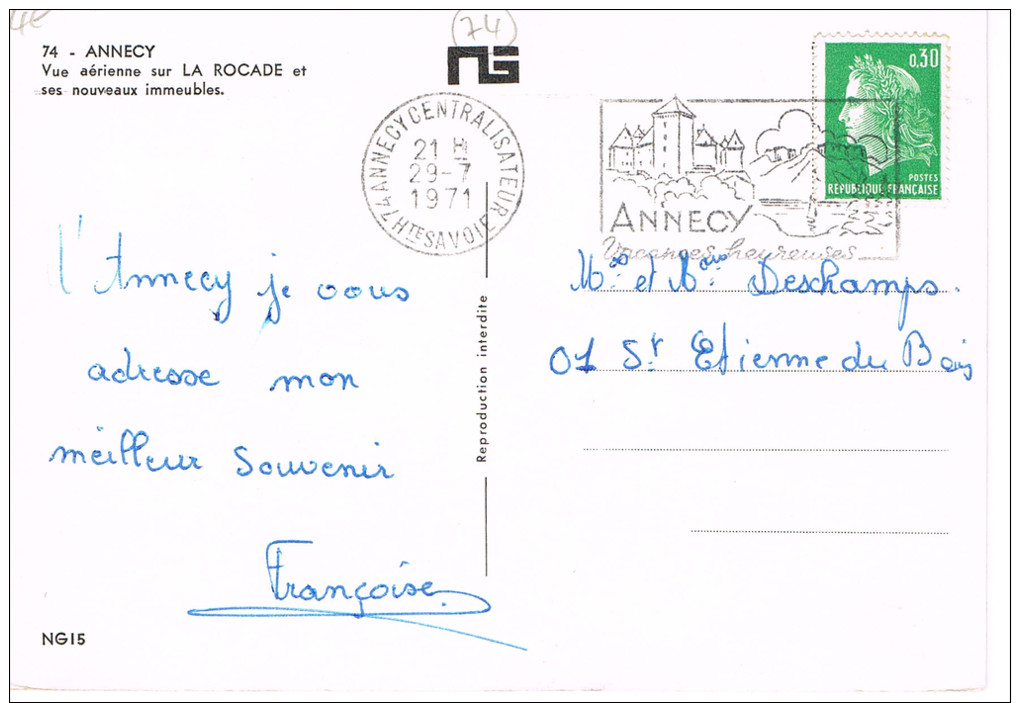 4€
74
74 - ANNECY
Vue aérienne sur LA ROCADE et
ses nouveaux immeubles.
NG
74 ANNECY CENTRALISATEUR
21 H
29-7
1971
HTE SAVOIE
ANNECY
Vacances heureuses
0,30
POSTES
REPUBLIQUE FRANÇAISE
d'Annecy je vous
adresse mon
meilleur souvenir
Françoise
Reproduction interdite
Mr et Mme Deschamps.
01 St Etienne du Bois
NG15